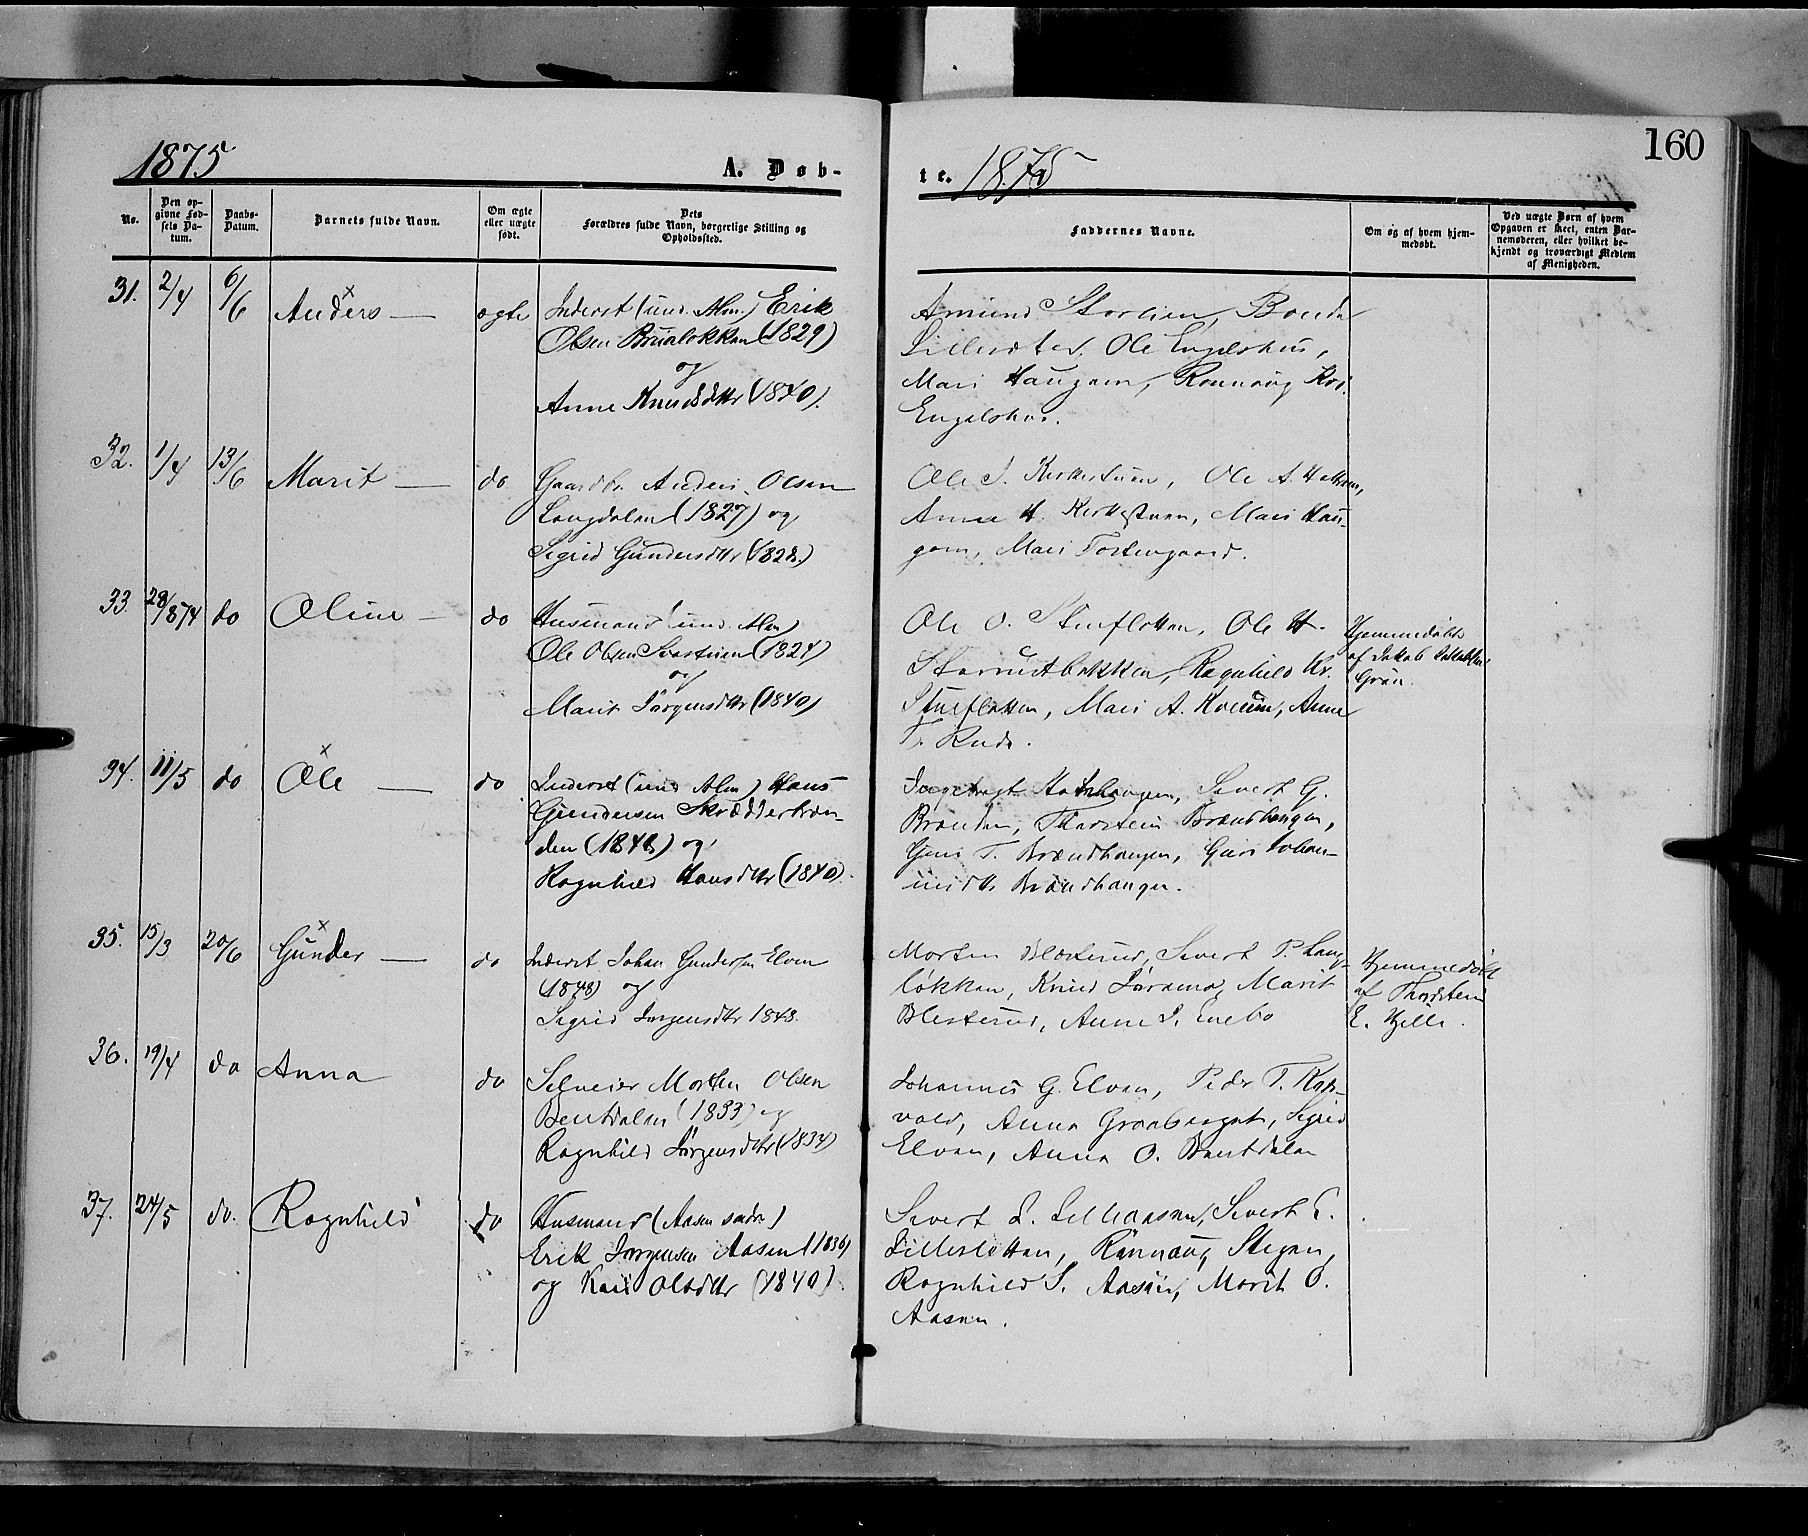 160
1875
A. Døb-
te. 1875
No.
Den op-
givne Fød-
sels Da-
tum.
Daabs-
Datum.
Barnets fulde Navn.
Om ægte
eller uægte
født.
Dets
Forældres fulde Navn, borgerlige Stilling og
Opholdssted.
Faddernes Navne.
Om og af hvem hjem-
medøbt.
Ved uægte Børn af hvem
Opgaven er skeet, enten Bar-
nemoderen, eller hvilket be-
kjendt og troværdigt Medlem
af Menigheden.
31. 2/4 6/6 Anders — ægte
Inderst (und. Alm.) Erik
Olsen Brualøkken (1829)
og
Anne Knudsdttr (1840).
Amund Storlien,
Ole Engelshus,
Mari Haugann, Rønnaug
Engelshus.
32. 1/4 13/6 Marit — do
Gaardbr. Anders Olsen
Langdalen (1827) og
Sigrid Gundersdttr (1828.)
Ole J. Kirkestuen, Ole A.
Anne H. Kirkestuen, Mari Hau-
gann, Mari Tostengaard.
33. 28/874 do Oline — do
Husmand (und. Alm)
Ole Olsen (1824)
og
Marit Jørgensdttr (1840)
Ole O. Stueflotten, Ole H.
Ragnhild Kr.
Stueflotten, Mari A. Anne
T. Rude.
Hjemmedøbt
af Jakob
34. 11/5 do Ole — do
Inderst (und Alm) Hans
Gundersen Skrædderbræn-
den (1848) og
Ragnhild Hansdttr (1840).
Sivert G.
Brænden, Thorstein Brændhaugen,
Guri T. Brændhaugen, Guri Johan-
nesdtt. Brændhaugen.
35. 15/3 20/6 Gunder — do
Inderst Johan Gundersen Elven
(1848) og
Sigrid Jørgensdttr 1848.
Morten Blesterud, Sivert P. Lang-
løkken, Knud Marit
Blesterud, Anne J. Enebo
Hjemmedøbt
af Thorstein
E. Hjelle.
36. 19/4 do Anna do
Selveier Morten Olsen
Bentdalen (1833) og
Ragnhild Jørgensdttr (1834)
Johannes G. Elven, Peder T.
Anna Graaberget, Sigrid
Elven, Anna O. Bentdalen
37. 24/5 do. Ragnhild do
Husmand (Aasen søndre)
Erik Jørgensen Aasen (1836)
og Kari Olsdttr (1840).
Sivert L. Lilleaasen, Sivert E.
Lillesletten, Rønnaug Stegen,
Ragnhild S. Aasen, Marit O.
Aasen.